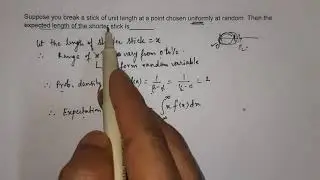 Suppose you break a stick of unit length at a point chosen uniformly at random. Then the
expected length of the shorter stick is
let the length of shorter stick = x
∴ Range of x vary from 0 to 1/2
form random variable
∴ Prob. density (x) = 1/(β-α) = 1/(1/2-0) = 2
∴ Expectation ∫ x f(x) dx